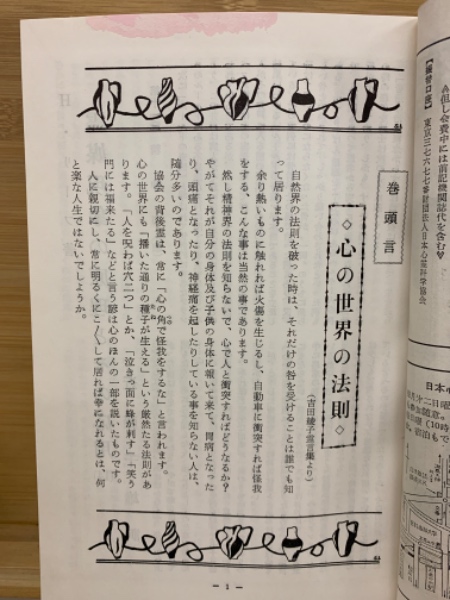 巻頭言
◇心の世界の法則◇
(吉田綾子霊言集より)
自然界の法則を破った時は、それだけの咎を受けることは誰でも知
って居ります。
余り熱いものに触れれば火傷を生じるし、自動車に衝突すれば怪我
をする、こんな事は当然の事であります。
然し精神界の法則を知らないで、心で人と衝突すればどうなるか?
やがてそれが自分の身体及び子供の身体に報いて来て、胃病となった
り、頭痛となったり、神経痛を起したりしている事を知らない人は、
随分多いのであります。
協会の背後霊は、常に「心の角で怪我をするな」と言われます。
心の世界にも「播いた通りの種子が生える」という厳然たる法則があ
ります。「人を呪わば穴二つ」とか、「泣きっ面に蜂が刺す」「笑う
門には福来たる」などと言う諺は心のほんの一部を説いたものです。
人に親切にし、常に明るくにこ〱して居れば幸になれるとは、何
と楽な人生ではないでしょうか。
— 1 —
但し会費中には前記機関誌代を含む
【振替口座】東京三七六七七番財団法人日本心霊科学協会
日本心